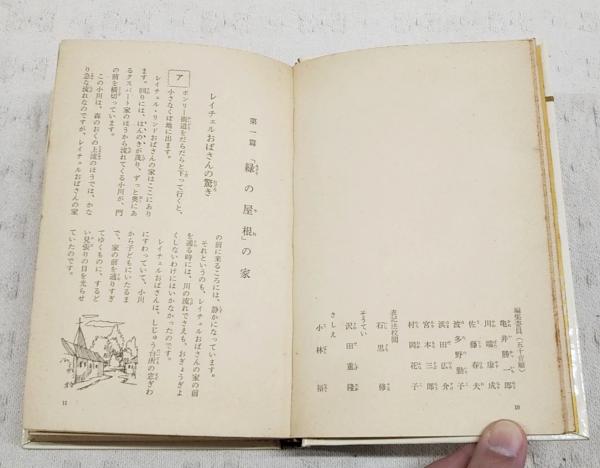 編集委員(五十音順)
亀井勝一郎
川端康成
佐藤春夫
波多野勤子
浜田広介
宮本三郎
村岡花子
表記法校閲
石黒修
そうてい
沢田重隆
さしえ
小林福
10
第一篇 「緑の屋根」の家
レイチェルおばさんの驚き
アボンリー街道をだらだらと下って行くと、
小さなくぼ地に出ます。
レイチェル・リンドおばさんの家はここにあり
ます。回りには、はんのきが茂り、ずっと奥にあ
るクスバート家のほうから流れてくる小川が、門
の前を横切っています。
この小川は、森のおくの上流のほうでは、かな
り急な流れなのですが、レイチェルおばさんの家
の前に来るころには、静かになっています。
それというのも、レイチェルおばさんの家の前
を通る時には、川の流れでさえも、おぎょうぎよ
くしないわけにはいかなかったのです。
レイチェルおばさんは、しじゅう台所の窓ぎわ
にすわっていて、小川
から子どもにいたるま
で、家の前を通りすぎ
てゆくものに、するど
い見張りの目を光らせ
ていたのです。
11